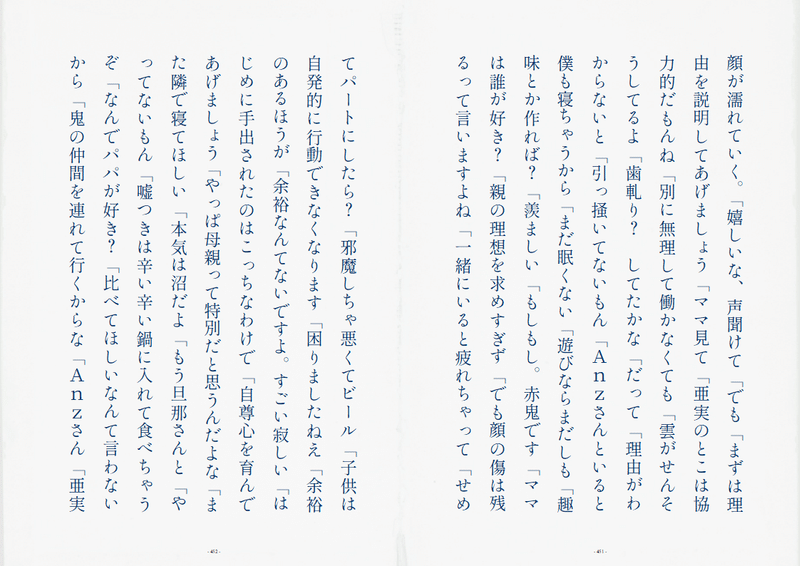 顔が濡れていく。「嬉しいな、声聞けて「でも「まずは理
由を説明してあげましょう「ママ見て「亜実のとこは協
力的だもんね「別に無理して働かなくても「雲がせんそ
うしてるよ「歯軋り？　してたかな「だって「理由がわ
からないと「引っ掻いてないもん「Ａｎｚさんといると
僕も寝ちゃうから「まだ眠くない「遊びならまだしも「趣
味とか作れば？「羨ましい「もしもし。赤鬼です「ママ
は誰が好き？「親の理想を求めすぎず「でも顔の傷は残
るって言いますよね「一緒にいると疲れちゃって「せめ
- 411 -
てパートにしたら？「邪魔しちゃ悪くてビール「子供は
自発的に行動できなくなります「困りましたねえ「余裕
のあるほうが「余裕なんてないですよ。すごい寂しい「は
じめに手出されたのはこっちなわけで「自尊心を育んで
あげましょう「やっぱ母親って特別だと思うんだよな「ま
た隣で寝てほしい「本気は沼だよ「もう旦那さんと「や
ってないもん「嘘つきは辛い辛い鍋に入れて食べちゃう
ぞ「なんでパパが好き？「比べてほしいなんて言わない
から「鬼の仲間を連れて行くからな「Ａｎｚさん「亜実
- 412 -